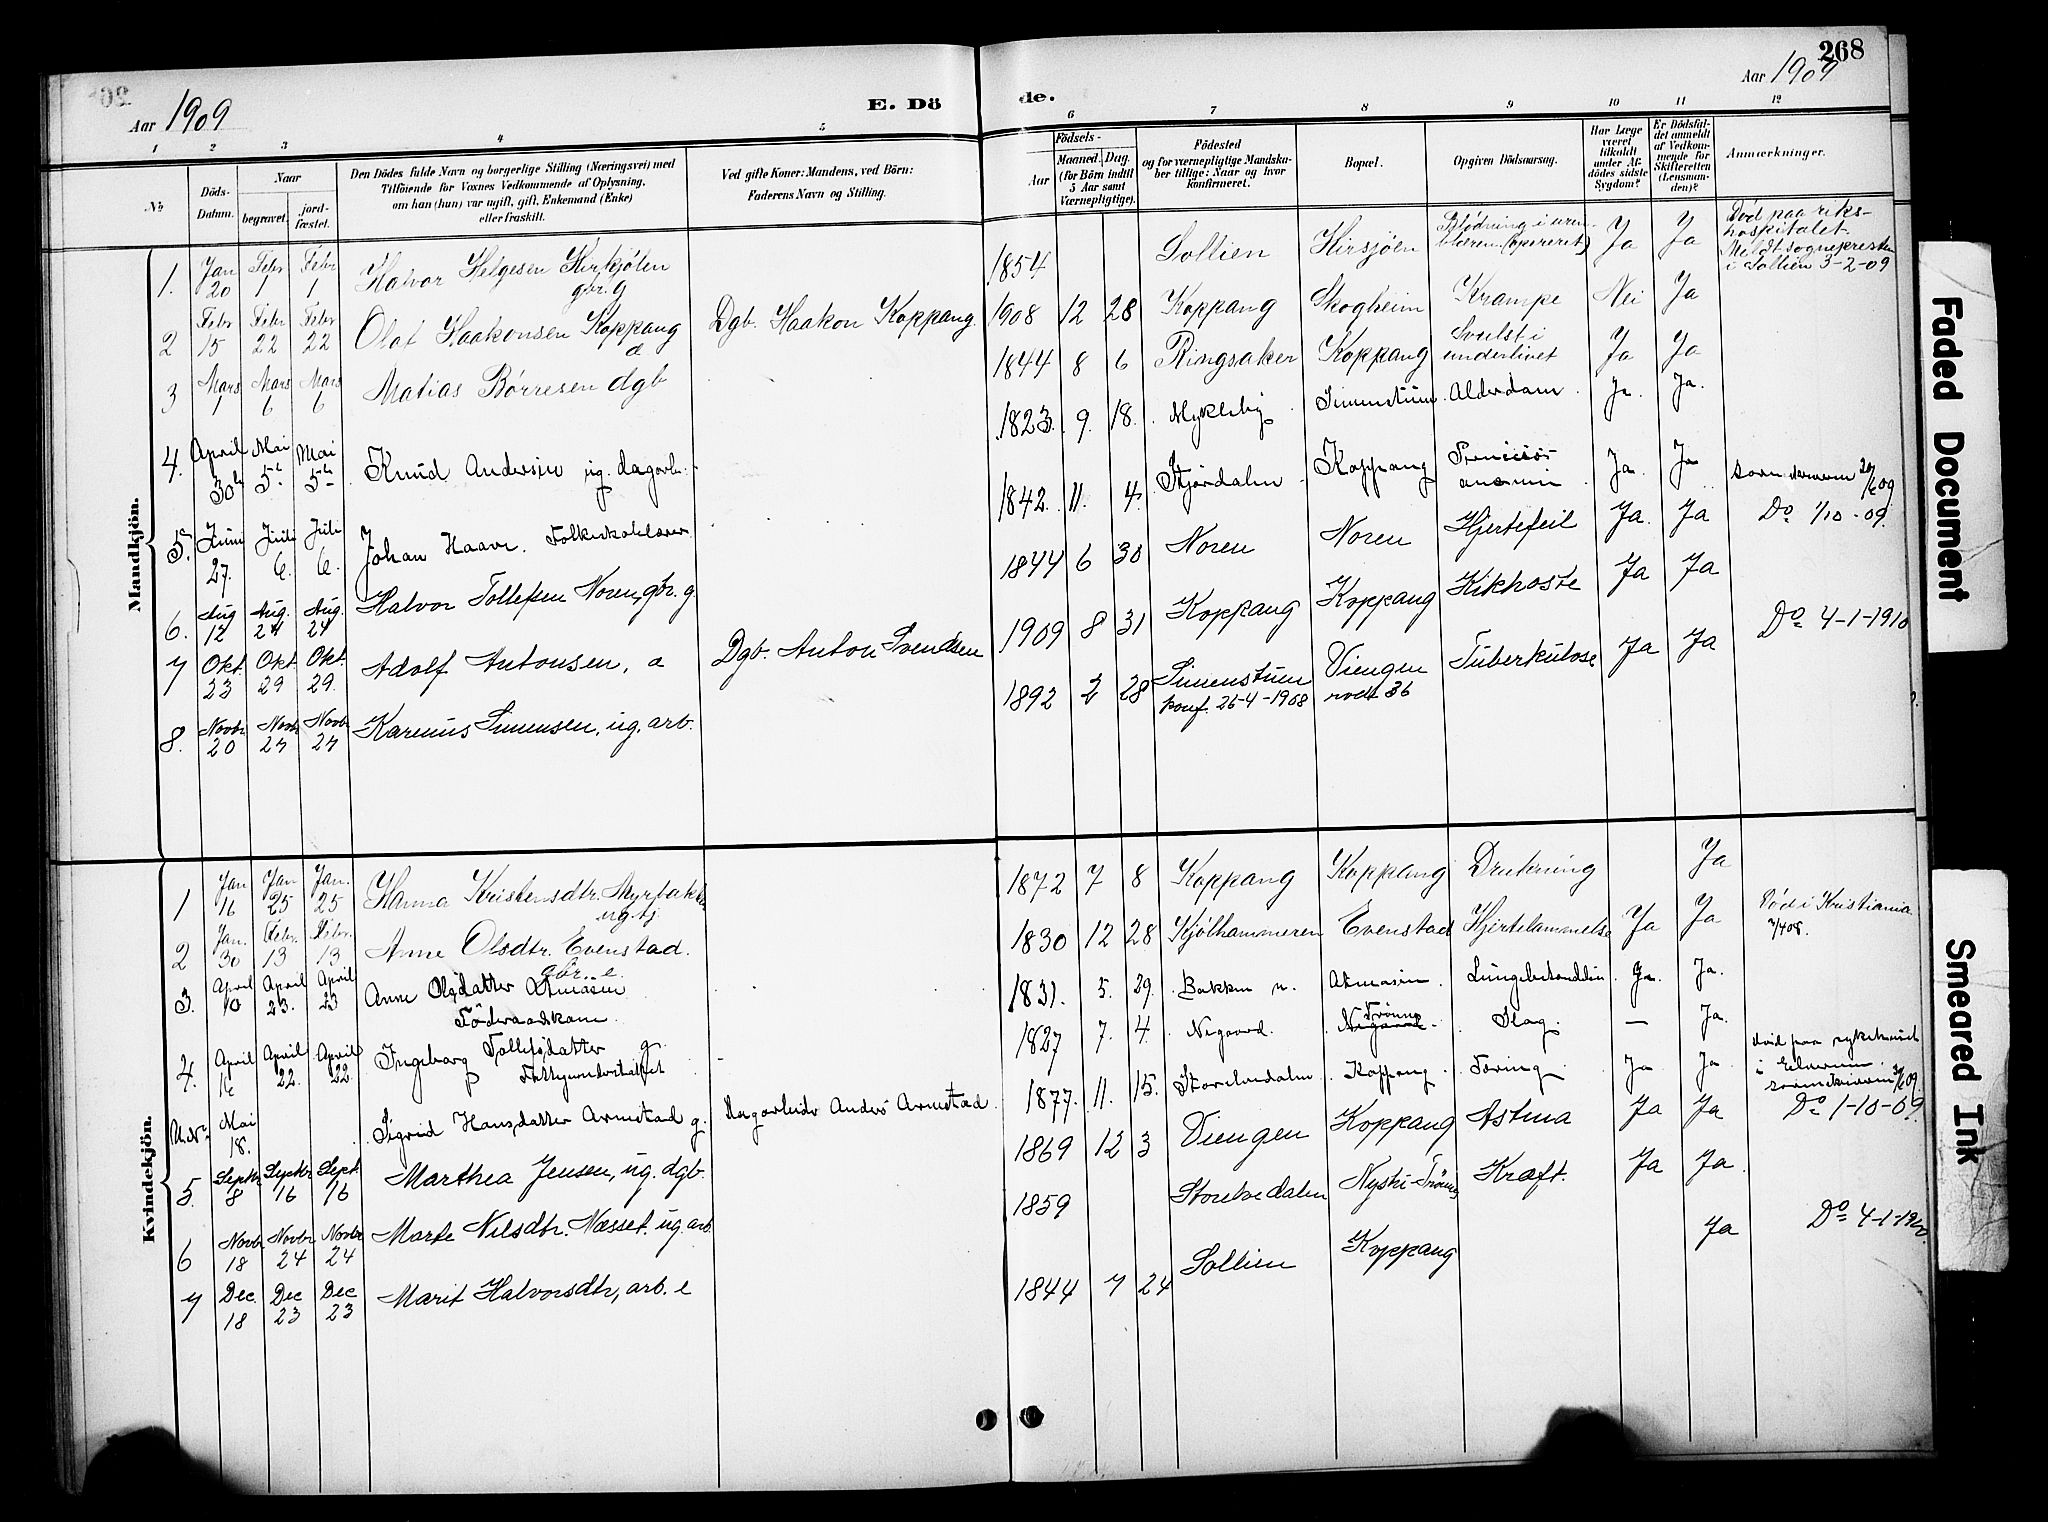 268
Aar 1909
E. Döde.
Aar 1909
1 2 3 4 5 6 7 8 9 10 11 12
No
Döds-Datum.
Naar
begravet.
jordfæstet.
Den Dödes fulde Navn og borgerlige Stilling (Næringsvei) med
Tilföiende for Voxnes Vedkommende af Oplysning,
om han (hun) var ugift, gift, Enkemand (Enke)
eller fraskilt.
Ved gifte Koner: Mandens, ved Börn:
Faderens Navn og Stilling.
Födsels-
Aar
Maaned. Dag.
(for Börn indtil
5 Aar samt
Værnepligtige).
Födested
og for værnepligtige Mandskaber
tillige: Naar og hvor
konfirmeret.
Bopæl.
Opgiven Dödsaarsag.
Har Læge
været
tilkaldt
under Afdödes
sidste
Sygdom?
Er Dödsfaldet
anmeldt
af Vedkommende
for
Skifteretten
(Lensmanden)?
Anmærkninger.
Mandkjön.
1. Jan 20 Febr 1 Febr 1 Halvor Helgesen Kirkjölen gbr. g 1854 Sollien Hirsjöen Blödning i urinblæren (opereret) Ja Ja Död paa rikshospitalet. Meldt sognepresten i Sollien 3-2-09
2 Febr 15 Febr 22 Febr 22 Olaf Haakonsen Koppang a Dgb. Haakon Koppang 1908 12 28 Koppang Skogheim Krampe Nei Ja
3 Mars 1 Mars 6 Mars 6 Matias Börresen dgb 1844 8 6 Ringsaker Koppang Svulst i underlivet Ja Ja
4. April 30te Mai 5te Mai 5te Knud Andersen ug. dagarb. 1823. 9. 18. Mykleby Simenstuen Alderdom. Ja. Ja.
5. Juni 27. Juli 6. Juli 6. Johan Haave. Folkeskolelærer 1842. 11. 4. Stjördalen Koppang Ja. Ja
6. Aug 12 Aug. 24 Aug. 24 Halvor Tollefsen Noren, gbr. g. 1844 6 30 Noren Noren Hjertefeil Ja. Ja Do 1/10-09.
7 Okt 23 Okt 29 Okt. 29. Adolf Antonsen, a Dgb. Anton Svendsen 1909 8 31 Koppang Koppang Kikhoste Ja Ja
8. Novbr 20 Novbr 27 Novbr 27 Karenus Simensen, ug. arb. 1892 2 28 Simenstuen konf. 26-4-1908 Viengen Tuberkulose Ja Ja Do 4-1-1910
Kvindekjön.
1 Jan 16 Jan 25 Jan. 25 Hanna Kristensdtr. Myrbakken ug. tj. 1872 7 8 Koppang Koppang Drukning Ja
2 Jan. 30 Febr. 13 Febr. 13 Anne Olsdtr. Evenstad. gbr. e. 1830 12 28 Kjölhammeren Evenstad Hjertelammelse Ja Ja Död i Kristiania
3. April 10 April 23. April 23 Anne Olsdatter Atneosen Föderaadskone 1831. 5. 29. Bakken n. Atneosen. Lungebetændelse Ja. Ja.
4. April 16 April 22. April 22. Ingeborg Tollefsdatter g. Fattigunderstöttet 1827 7. 4. Negaard. Negaard. Trönnes Slag. — Ja.
U. No. Mai 18. Sigrid Hansdatter Armstad g. Dagarbeider Anders Armstad 1877. 11. 15. Storelvedalen Koppang. Tæring Ja Ja. död paa sykehuset i Elverum
5. Septbr 8 Septbr 16 Sept. 16 Marthea Jensen, ug. dgb. 1869 12 3 Viengen Koppang Astma Ja Ja Do 1-10-09
6 Novbr 18 Novbr 24 Novbr 24 Marte Nilsdtr. Næsset. ug. arb. 1859 Storelvedalen Kræft. Ja Ja.
7 Dec. 18 Dec 23 Dec 23 Marit Halvorsdtr, arb. e 1844 7 24 Sollien Koppang Ja Do 4-1-1910
Faded Document
Smeared Ink